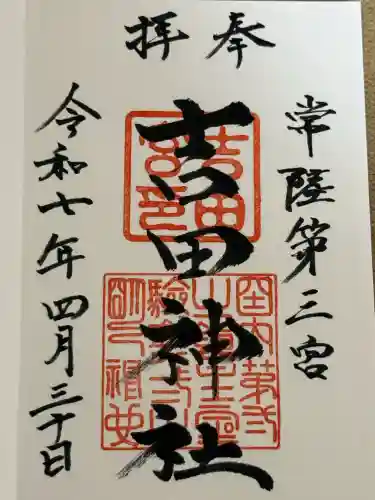 奉拝
常陸第三宮
吉田神社
令和七年四月三十日